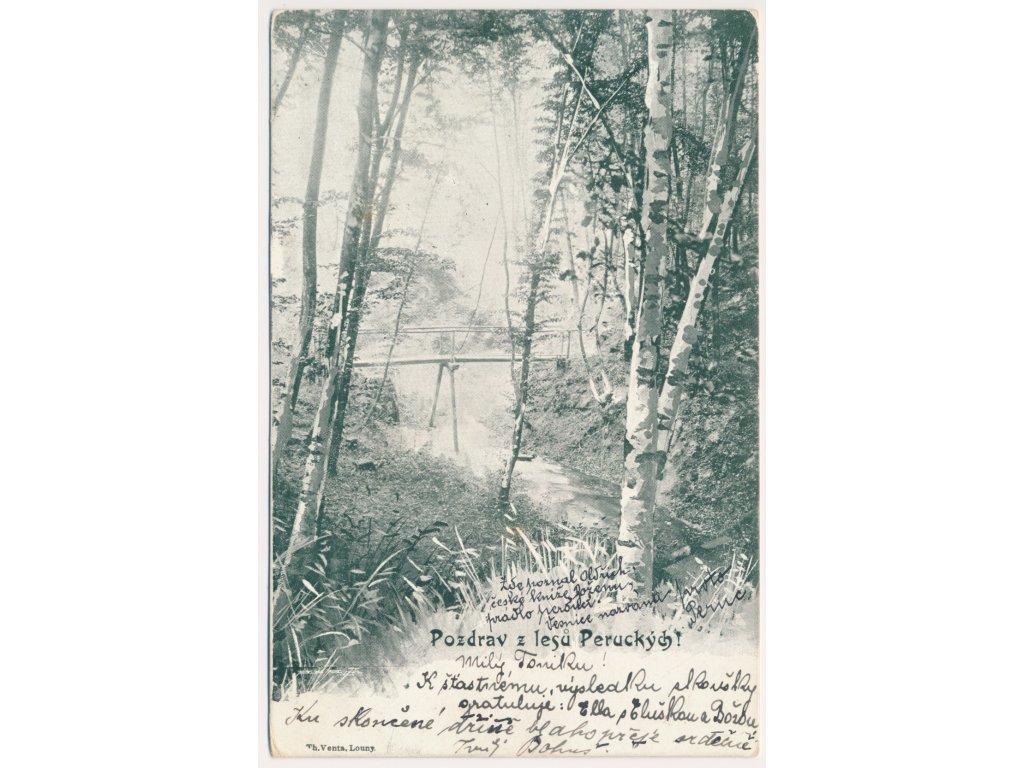 Zde poznal Oldřich
české kníže Boženu,
prádlo peroucí.
Vesnice nazvána proto
Peruc.
Pozdrav z lesů Peruckých!
Milý Toniku!
K šťastnému výsledku zkoušky
gratuluje: Ella, s Eluškou a
Ku skončené dřině blahopřeje srdečně
Bohuš.
Th. Venta, Louny.